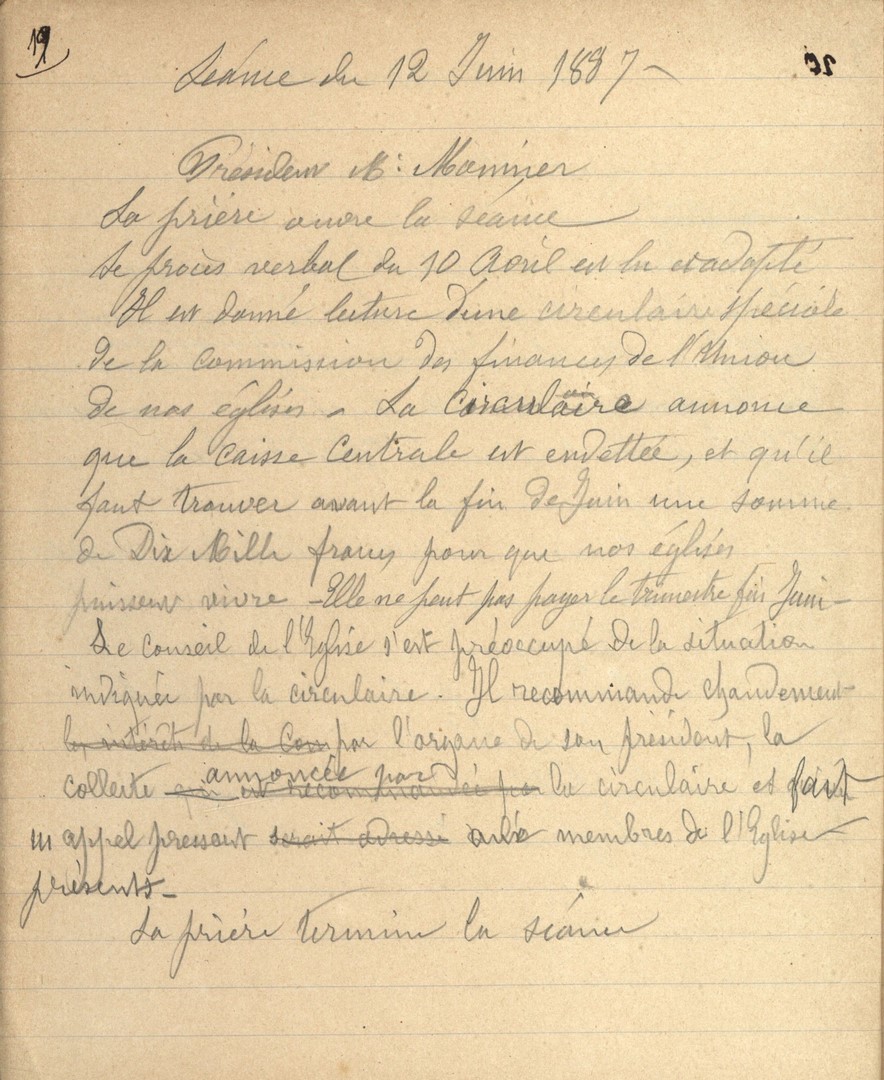 19
Séance du 12 Juin 1887 -
Président Mr Monnier
La prière ouvre la séance
Le procès verbal du 10 Avril est lu et adopté
Il est donné lecture d'une circulaire spéciale
de la commission des finances de l'Union
de nos églises - La circulaire annonce
que la caisse Centrale est endettée, et qu'il
faut trouver avant la fin de Juin une somme
de Dix Mille francs pour que nos églises
puissent vivre - Elle ne peut pas payer le trimestre fin Juin -
Le conseil de l'Eglise s'est préoccupé de la situation
indiquée par la circulaire. Il recommande chaudement
les intérêts de la Com par l'organe de son président, la
annoncée par
collecte qui est recommandée par la circulaire et fait
un appel pressant serait adressé aux membres de l'Eglise
présents -
La prière termine la séance